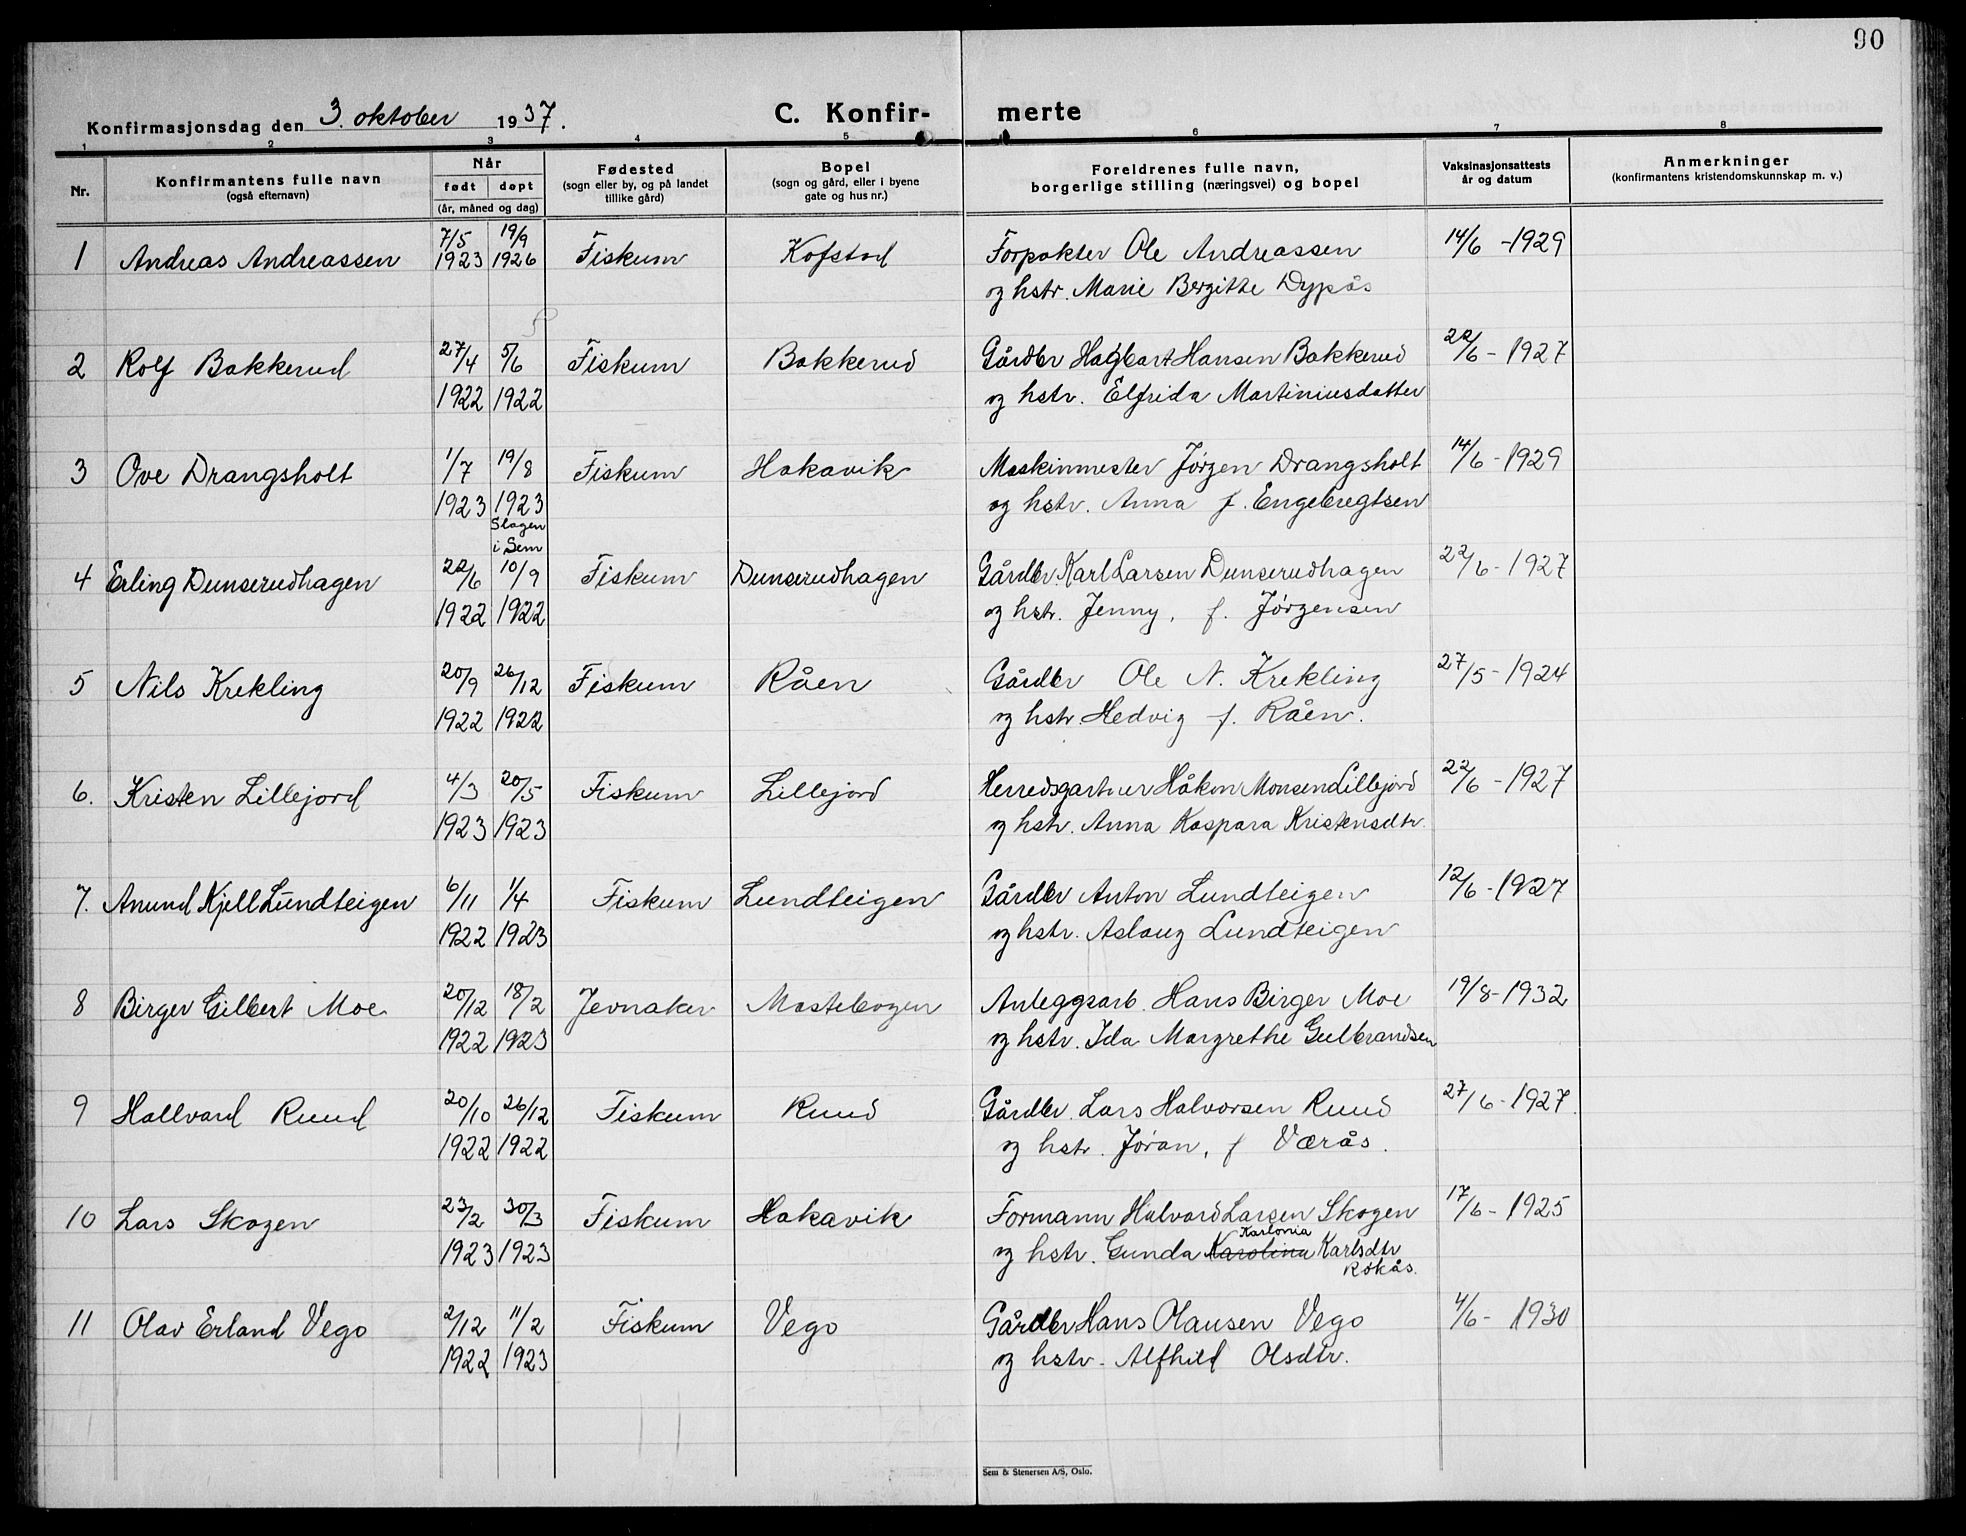 90
Konfirmasjonsdag den 3. oktober 1937.
C. Konfir- merte
1 2 3 4 5 6 7 8
Nr.
Konfirmantens fulle navn
(også efternavn)
Når
født døpt
(år, måned og dag)
Fødested
(sogn eller by, og på landet
tillike gård)
Bopel
(sogn og gård, eller i byene
gate og hus nr.)
Foreldrenes fulle navn,
borgerlige stilling (næringsvei) og bopel
Vaksinasjonsattests
år og datum
Anmerkninger
(konfirmantens kristendomskunnskap m. v.)
1 Andreas Andreassen 7/5 1923 19/9 1926 Fiskum Kofstad Forpakter Ole Andreassen 14/6 - 1929
og hstr. Marie Bergitte Dypås
2 Rolf Bakkerud 27/4 5/6 Fiskum Bakkerud Gårdbr Hagbart Hansen Bakkerud 22/6 - 1927
1922 1922 og hstr. Elfrida Martiniusdatter
3 Ove Drangsholt 1/7 19/8 Fiskum Hakavik Maskinmester Jörgen Drangsholt 14/6 - 1929
1923 1923 og hstr. Anna f. Engebregtsen
Slagen
i Sem
4 Erling Dunserudhagen 22/6 10/9 Fiskum Dunserudhagen Gårdbr. Karl Larsen Dunserudhagen 22/6 - 1927
1922 1922 og hstr. Jenny, f. Jörgensen
5 Nils Krekling 20/9 26/12 Fiskum Råen Gårdbr Ole N. Krekling 27/5 - 1924
1922 1922 og hstr. Hedvig f. Råen.
6. Kristen Lillejord 4/3 20/5 Fiskum Lillejord Herredsgartner Håkon Monsen Lillejord 22/6 - 1927
1923 1923 og hstr. Anna Kaspara Kristensdtr.
7. Anund Kjell Lundteigen 6/11 1/4 Fiskum Lundteigen Gårdbr Anton Lundteigen 12/6 - 1927
1922 1923 og hstr. Aslaug Lundteigen
8 Birger Gilbert Moe 20/12 18/2 Jevnaker Mastebogen Anleggsarb. Hans Birger Moe 19/8 - 1932
1922 1923 og hstr. Ida Margrethe Gulbrandsen
9 Hallvard Ruud 20/10 26/12 Fiskum Ruud Gårdbr. Lars Halvorsen Ruud 27/6 - 1927.
1922 1922 og hstr. Jöran, f Værås.
10 Lars Skogen 23/2 30/3 Fiskum Hakavik Formann Halvard Larsen Skogen 17/6 - 1925
Karlonia
1923 1923 og hstr. Gunda Karolina Karlsdtr
Rökås.
11 Olav Erland Vego 2/12 11/2 Fiskum Vego Gårdbr Hans Olausen Vego 4/6 - 1930
1922 1923 og hstr. Alfhild Olsdtr.
Sem & Stenersen A/S, Oslo.